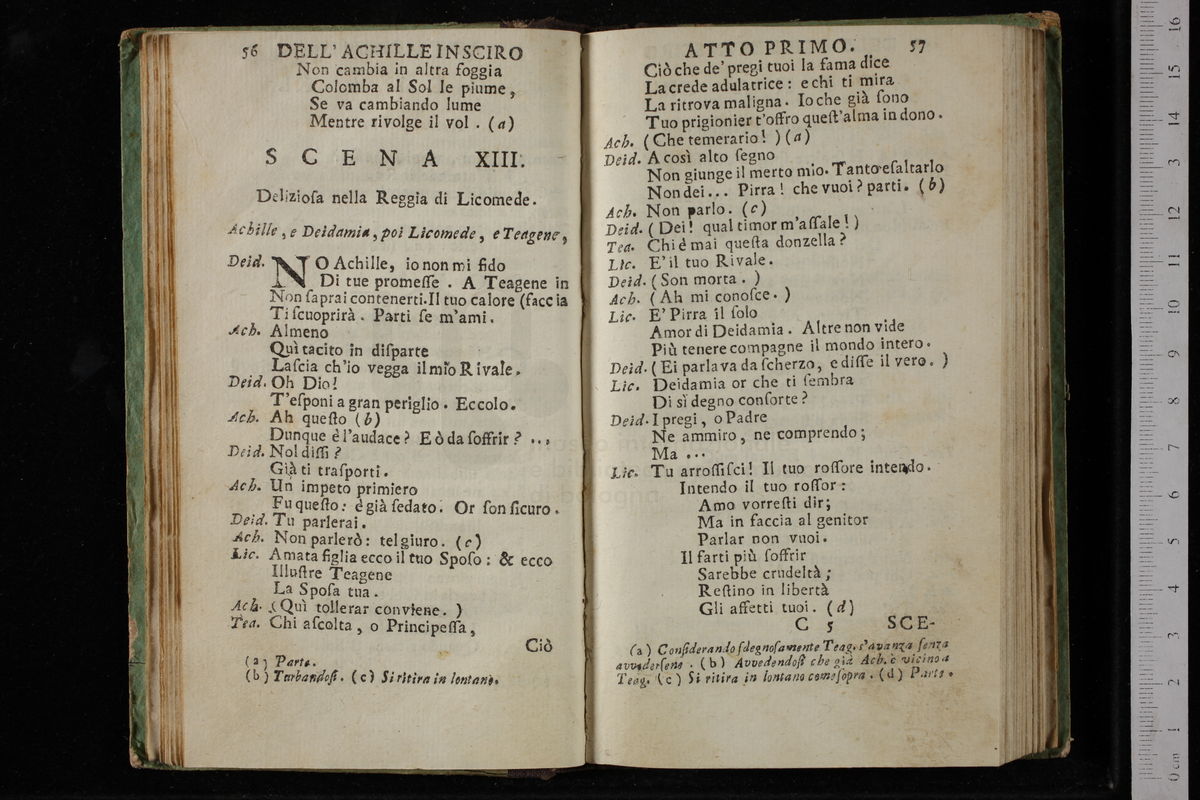 56 DELL' ACHILLE IN SCIRO
Non cambia in altra foggia
Colomba al Sol le piume,
Se va cambiando lume
Mentre rivolge il vol. (a)
SCENA XIII.
Deliziosa nella Reggia di Licomede.
Achille, e Deidamia, poi Licomede, e Teagene,
Deid. NO Achille, io non mi fido
Di tue promesse. A Teagene in
Non saprai contenerti. Il tuo calore (faccia
Ti scuoprirà. Parti se m'ami.
Ach. Almeno
Quì tacito in disparte
Lascia ch'io vegga il mio Rivale.
Deid. Oh Dio!
T'esponi a gran periglio. Eccolo.
Ach. Ah questo (b)
Dunque è l'audace? E ò da soffrir? ...
Deid. Nol dissi?
Già ti trasporti.
Ach. Un impeto primiero
Fu questo: è già sedato. Or son sicuro.
Deid. Tu parlerai.
Ach. Non parlerò: tel giuro. (c)
Lic. Amata figlia ecco il tuo Sposo: & ecco
Illustre Teagene
La Sposa tua.
Ach. (Quì tollerar conviene.)
Tea. Chi ascolta, o Principessa,
Ciò
(a) Parte.
(b) Turbandosi. (c) Si ritira in lontano.
ATTO PRIMO. 57
Ciò che de' pregi tuoi la fama dice
La crede adulatrice: e chi ti mira
La ritrova maligna. Io che già sono
Tuo prigionier t'offro quest'alma in dono.
Ach. (Che temerario!) (a)
Deid. A così alto segno
Non giunge il merto mio. Tanto esaltarlo
Non dei... Pirra! che vuoi? parti. (b)
Ach. Non parlo. (c)
Deid. (Dei! qual timor m'assale!)
Tea. Chi è mai questa donzella?
Lic. E' il tuo Rivale.
Deid. (Son morta.)
Ach. (Ah mi conosce.)
Lic. E' Pirra il solo
Amor di Deidamia. Altre non vide
Più tenere compagne il mondo intero.
Deid. (Ei parlava da scherzo, e disse il vero.)
Lic. Deidamia or che ti sembra
Di sì degno consorte?
Deid. I pregi, o Padre
Ne ammiro, ne comprendo;
Ma ...
Lic. Tu arrossisci! Il tuo rossore intendo.
Intendo il tuo rossor:
Amo vorresti dir;
Ma in faccia al genitor
Parlar non vuoi.
Il farti più soffrir
Sarebbe crudeltà;
Restino in libertà
Gli affetti tuoi. (d)
C 5 SCE-
(a) Considerando sdegnosamente Teag. s'avanza senza
avvedersene. (b) Avvedendosi che già Ach. è vicino a
Teag. (c) Si ritira in lontano come sopra. (d) Parte.
0 cm 1 2 3 4 5 6 7 8 9 10 11 12 13 14 15 16